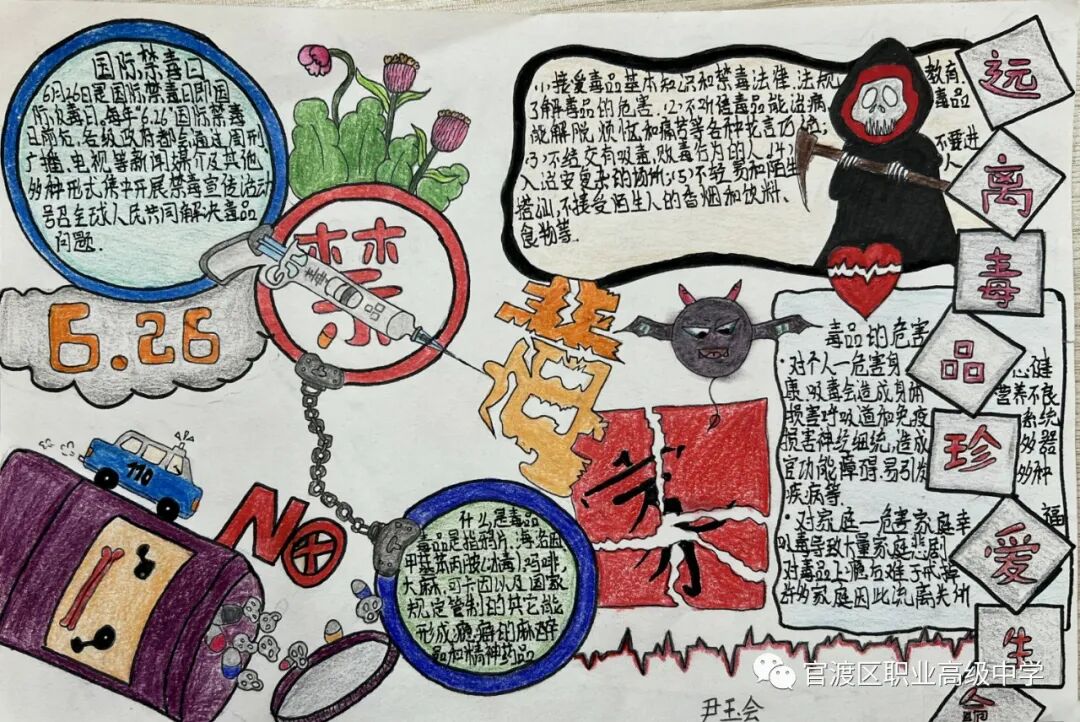 国际禁毒日
6月26日是国际禁毒日即国
际反毒日，每年"6.26"国际禁毒
日前后，各级政府都会通过周刊
广播、电视等新闻媒介及其他
多种形式集中开展禁毒宣传活动
号召全球人民共同解决毒品
问题.
6.26
禁
毒品
110
NO
什么是毒品
毒品是指鸦片，海洛因
甲基苯丙胺(冰毒)，吗啡
大麻，可卡因以及国家
规定管制的其它能
形成瘾癖的麻醉
品和精神药品
(1)接受毒品基本知识和禁毒法律.法规教育.
了解毒品的危害.(2)不听信毒品能治病毒品
能解脱，烦恼和痛苦等各种花言巧语;
(3)不结交有吸毒,贩毒行为的人.(4)不要进
入治安复杂的场所.(5)不轻易和陌生人
搭讪,不接受陌生人的香烟和饮料、
食物等.
毒品的危害
·对个人—危害身心健
康.吸毒会造成身体营养不良
损害呼吸道和免疫系统
损害神经细统,造成多器
官功能障碍.易引发多种
疾病等
·对家庭—危害家庭幸福
吸毒导致大量家庭悲剧
对毒品上瘾后难于戒掉
许多家庭因此流离失所
远
离
毒
品
珍
爱
生
命
尹玉会
官渡区职业高级中学